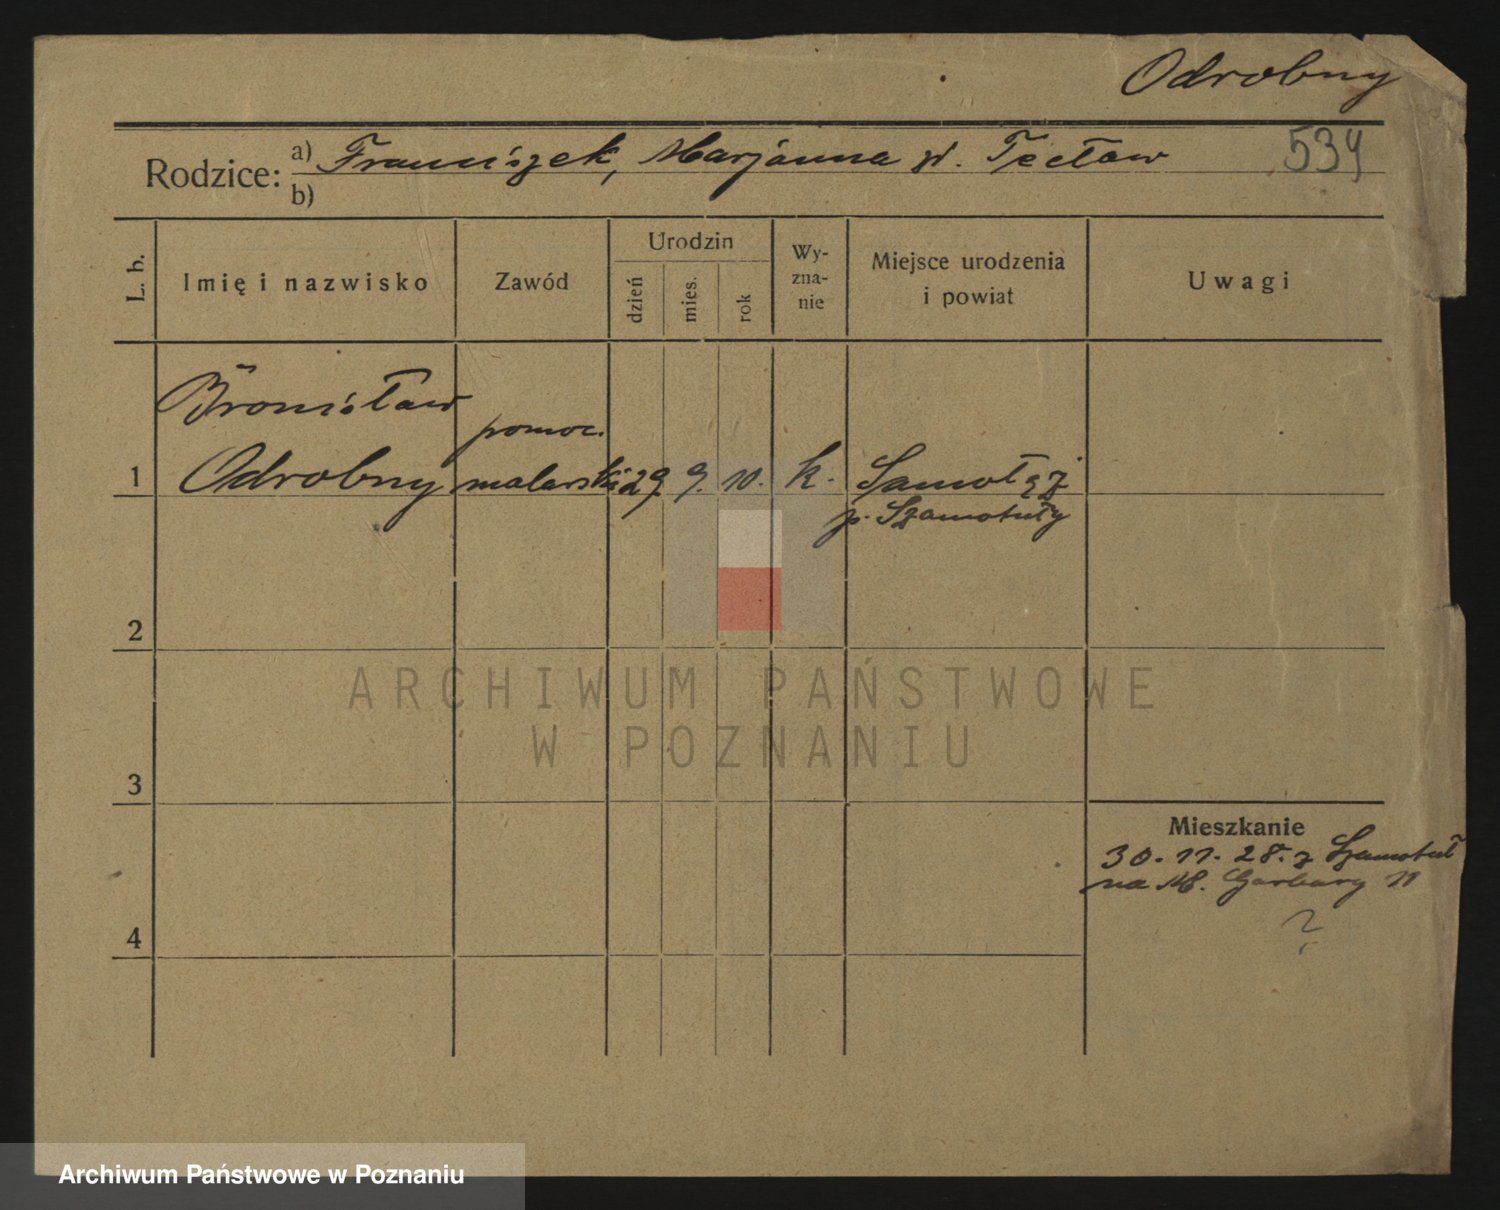 Odrobny
Rodzice: a) Franciszek, Marjanna zd. Tecław 534
b)
L. b. Imię i nazwisko Zawód Urodzin dzień mies. rok Wy-zna-nie Miejsce urodzenia i powiat Uwagi
Bronisław
pomoc.
1 Odrobny malarski 29 9. 10. k. Samołęż
p. Szamotuły
2
ARCHIWUM PAŃSTWOWE
W POZNANIU
3
Mieszkanie
30. 11. 28. z Szamotuł
na M. Garbary 11
?
4
Archiwum Państwowe w Poznaniu